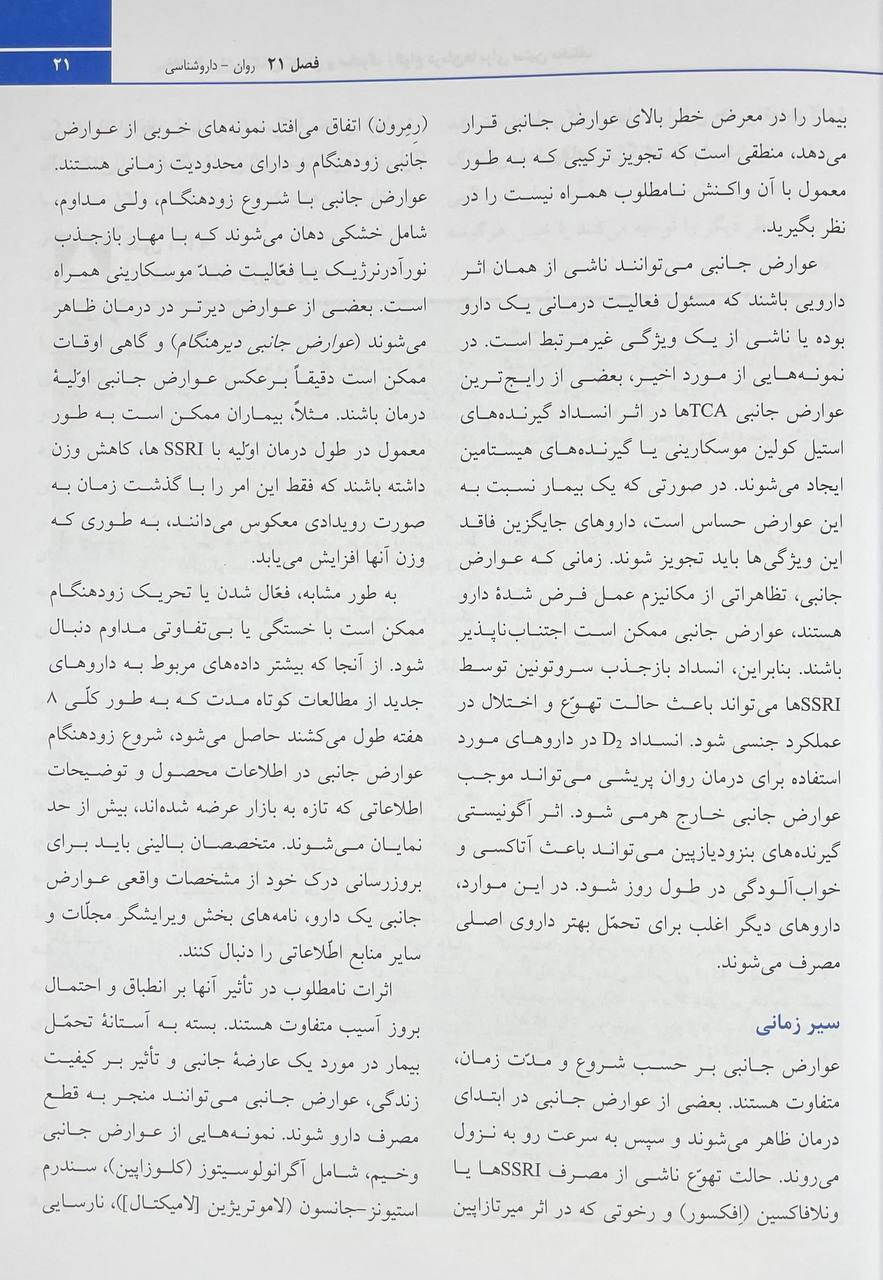 فصل ۲۱ روان - داروشناسی
۲۱
بیمار را در معرض خطر بالای عوارض جانبی قرار
می‌دهد، منطقی است که تجویز ترکیبی که به طور
معمول با آن واکنش نامطلوب همراه نیست را در
نظر بگیرید.
عوارض جانبی می‌توانند ناشی از همان اثر
دارویی باشند که مسئول فعالیت درمانی یک دارو
بوده یا ناشی از یک ویژگی غیرمرتبط است. در
نمونه‌هایی از مورد اخیر، بعضی از رایج‌ترین
عوارض جانبی TCAها در اثر انسداد گیرنده‌های
استیل کولین موسکارینی یا گیرنده‌های هیستامین
ایجاد می‌شوند. در صورتی که یک بیمار نسبت به
این عوارض حساس است، داروهای جایگزین فاقد
این ویژگی‌ها باید تجویز شوند. زمانی که عوارض
جانبی، تظاهراتی از مکانیزم عمل فرض شدۀ دارو
هستند، عوارض جانبی ممکن است اجتناب‌ناپذیر
باشند. بنابراین، انسداد بازجذب سروتونین توسط
SSRIها می‌تواند باعث حالت تهوّع و اختلال در
عملکرد جنسی شود. انسداد D₂ در داروهای مورد
استفاده برای درمان روان پریشی می‌تواند موجب
عوارض جانبی خارج هرمی شود. اثر آگونیستی
گیرنده‌های بنزودیازپین می‌تواند باعث آتاکسی و
خواب‌آلودگی در طول روز شود. در این موارد،
داروهای دیگر اغلب برای تحمّل بهتر داروی اصلی
مصرف می‌شوند.
سیر زمانی
عوارض جانبی بر حسب شروع و مدّت زمان،
متفاوت هستند. بعضی از عوارض جانبی در ابتدای
درمان ظاهر می‌شوند و سپس به سرعت رو به نزول
می‌روند. حالت تهوّع ناشی از مصرف SSRIها یا
ونلافاکسین (اِفکسور) و رخوتی که در اثر میرتازاپین
(رِمِرون) اتفاق می‌افتد نمونه‌های خوبی از عوارض
جانبی زودهنگام و دارای محدودیت زمانی هستند.
عوارض جانبی با شروع زودهنگام، ولی مداوم،
شامل خشکی دهان می‌شوند که با مهار بازجذب
نورآدرنرژیک یا فعّالیت ضدّ موسکارینی همراه
است. بعضی از عوارض دیرتر در درمان ظاهر
می‌شوند (عوارض جانبی دیرهنگام) و گاهی اوقات
ممکن است دقیقاً برعکس عوارض جانبی اوّلیۀ
درمان باشند. مثلاً، بیماران ممکن است به طور
معمول در طول درمان اولّیه با SSRI ها، کاهش وزن
داشته باشند که فقط این امر را با گذشت زمان به
صورت رویدادی معکوس می‌دانند، به طوری که
وزن آنها افزایش می‌یابد.
به طور مشابه، فعّال شدن یا تحریک زودهنگام
ممکن است با خستگی یا بی‌تفاوتی مداوم دنبال
شود. از آنجا که بیشتر داده‌های مربوط به داروهای
جدید از مطالعات کوتاه مدت که به طور کلّی ۸
هفته طول می‌کشند حاصل می‌شود، شروع زودهنگام
عوارض جانبی در اطلاعات محصول و توضیحات
اطلاعاتی که تازه به بازار عرضه شده‌اند، بیش از حد
نمایان می‌شوند. متخصصان بالینی باید برای
بروزرسانی درک خود از مشخصات واقعی عوارض
جانبی یک دارو، نامه‌های بخش ویرایشگر مجلّات و
سایر منابع اطّلاعاتی را دنبال کنند.
اثرات نامطلوب در تأثیر آنها بر انطباق و احتمال
بروز آسیب متفاوت هستند. بسته به آستانۀ تحمّل
بیمار در مورد یک عارضۀ جانبی و تأثیر بر کیفیت
زندگی، عوارض جانبی می‌توانند منجر به قطع
مصرف دارو شوند. نمونه‌هایی از عوارض جانبی
وخیم، شامل آگرانولوسیتوز (کلوزاپین)، سندرم
استیونز-جانسون (لاموتریژین [لامیکتال])، نارسایی